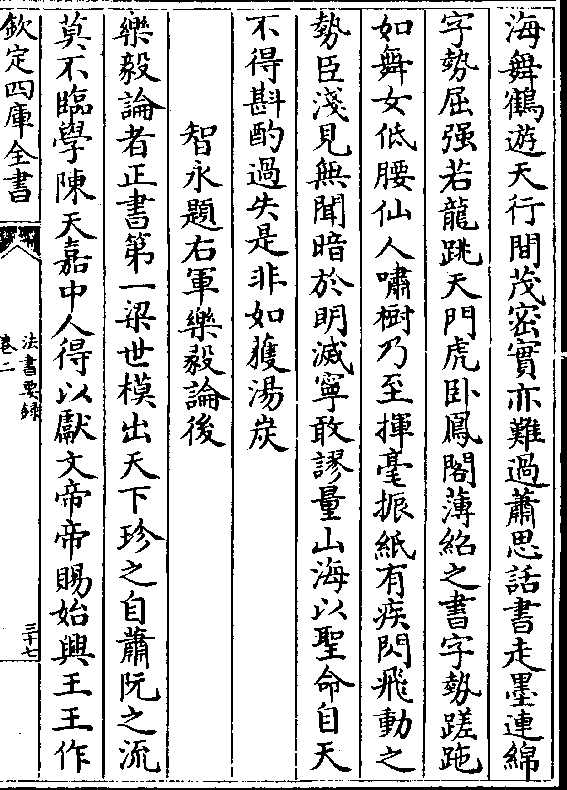 海舞鶴遊天行間茂密實亦難過蕭思話書走墨連綿
字勢屈强若龍跳天門虎卧鳳閣薄紹之書字勢蹉跎
如舞女低腰仙人嘯樹乃至揮毫振紙有疾閃飛動之
勢臣淺見無聞暗於明滅寧敢謬量山海以聖命自天
不得斟酌過失是非如獲湯炭
智永題右軍樂毅論後
樂毅論者正書第一梁世模出天下珍之自蕭阮之流
莫不臨學陳天嘉中人得以獻文帝帝賜始興王王作
欽定四庫全書
法書要録
卷二
三十七